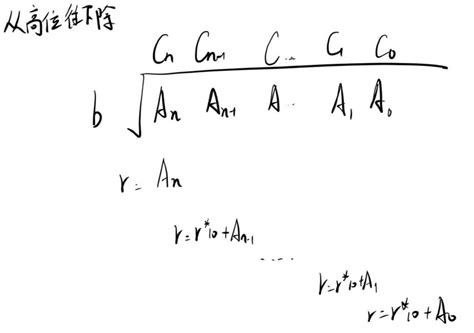 从高位往下除
Cn Cn-1 C... C1 C0
b An An-1 A... A1 A0
r = An
r=r*10+An-1
....
r=r*10+A1
r=r*10+A0